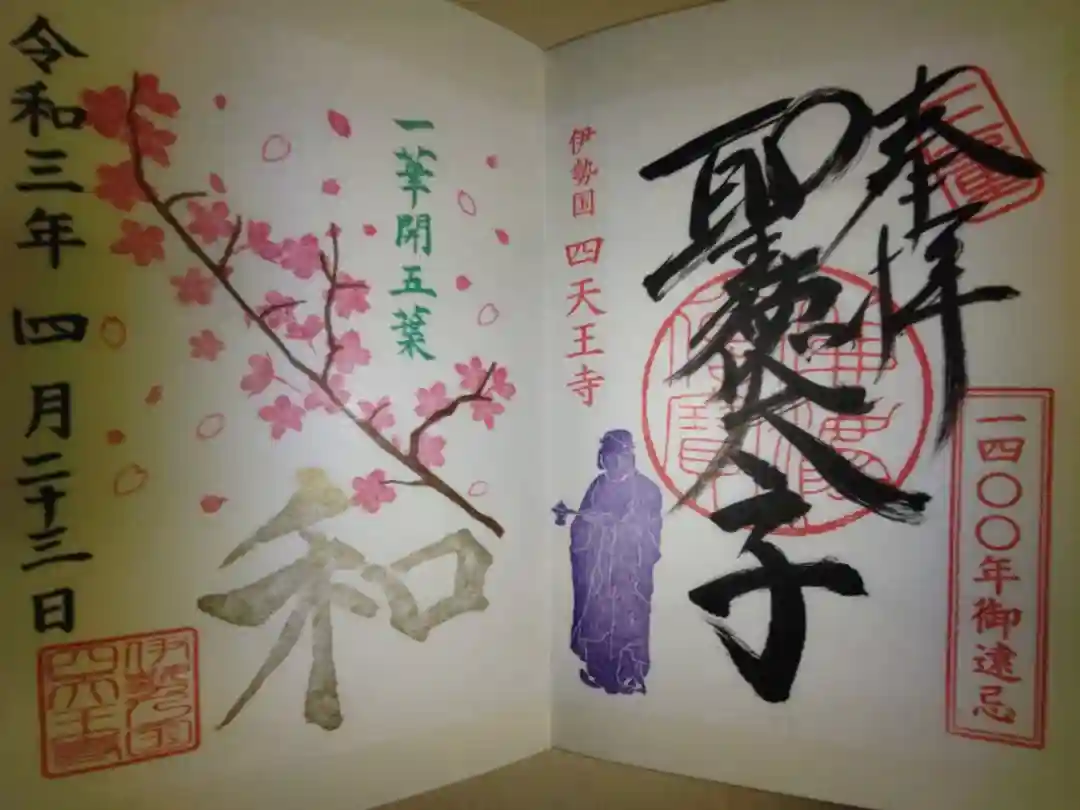 奉拝
聖徳太子
一四〇〇年御遠忌
伊勢国 四天王寺
一華開五葉
和
令和三年 四月二十三日
伊勢之国
四天王寺